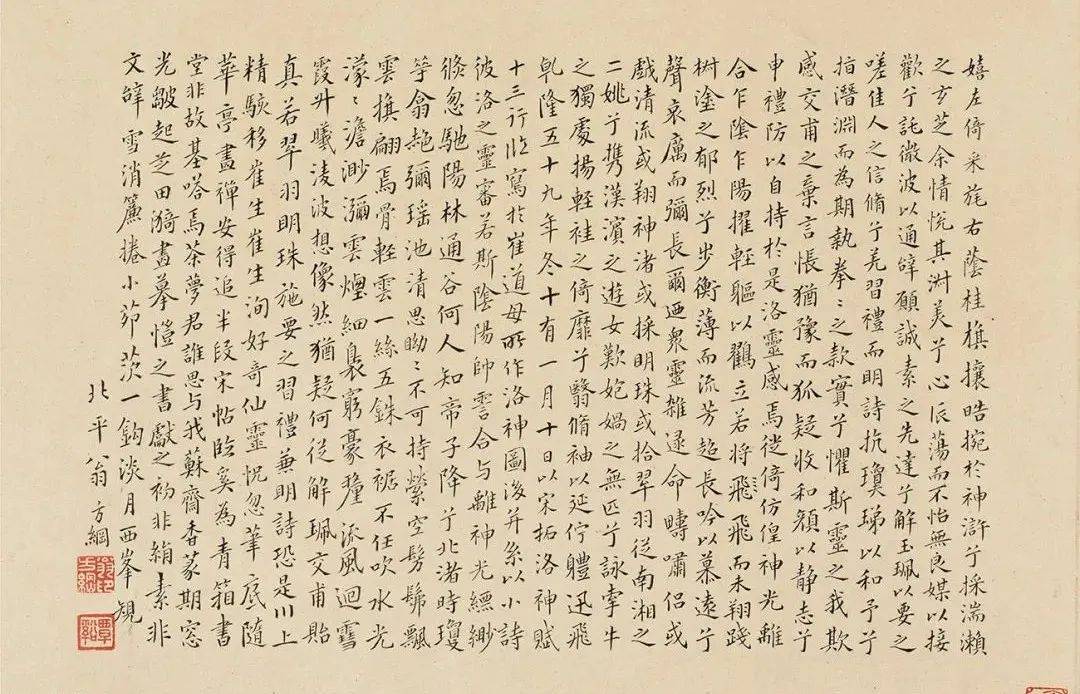 嬉左倚采旄右蔭桂旗攘皓捥於神滸兮採湍瀬
之玄芝余情悅其淑美兮心振蕩而不怡無良媒以接
歡兮託微波以通辭願誠素之先達兮解玉珮以要之
嗟佳人之信脩兮羌習禮而明詩抗瓊珶以和予兮
指潛淵而為期執拳〻之款實兮懼斯靈之我欺
感交甫之棄言悵猶豫而狐疑收和顏以静志兮
申禮防以自持於是洛靈感焉徙倚仿偟神光離
合乍陰乍陽擢輕軀以鸖立若將飛飛而未翔踐
椒塗之郁烈兮步衡薄而流芳超長吟以慕遠兮
聲哀厲而彌長爾迺衆靈雜遝命疇嘯侶或
戲清流或翔神渚或採明珠或拾翠羽從南湘之
二姚兮攜漢濱之遊女歎妑媧之無匹兮詠牽牛
之獨處揚輕袿之倚靡兮翳脩袖以延佇體迅飛
乹隆五十九年冬十有一月十日以宋拓洛神賦
十三行臨寫於崔道母所作洛神圖後并系以小詩
彼洛之靈審若斯陰陽帥雲合与離神光縹緲
倏忽馳陽林通谷何人知帝子降兮北渚時瓊
翕赩彌瑤池清思眑〻不可持縈空髣髴飄
雲旗翩焉骨輕雲一絲五銖衣裾不任吹水光
濛〻澹渺瀰雲煙細裊窮豪釐流風迴雪
霞升曦淩波想像然猶疑何從解珮交甫貽
真若翠羽明珠施要之習禮兼明詩恐是川上
精駭移崔生崔生洵好奇仙靈怳忽筆底隨
華亭畫禪安得追半段宋帖臨奚為青箱書
堂非故基嗒焉茶夢君誰思与我蘇齋香篆期窓
光皺起芝田漪畫摹愷之書獻之初非絹素非
文辭雪消簾捲小茆茨一鉤淡月西峯規
北平翁方綱
翁印方綱
覃谿